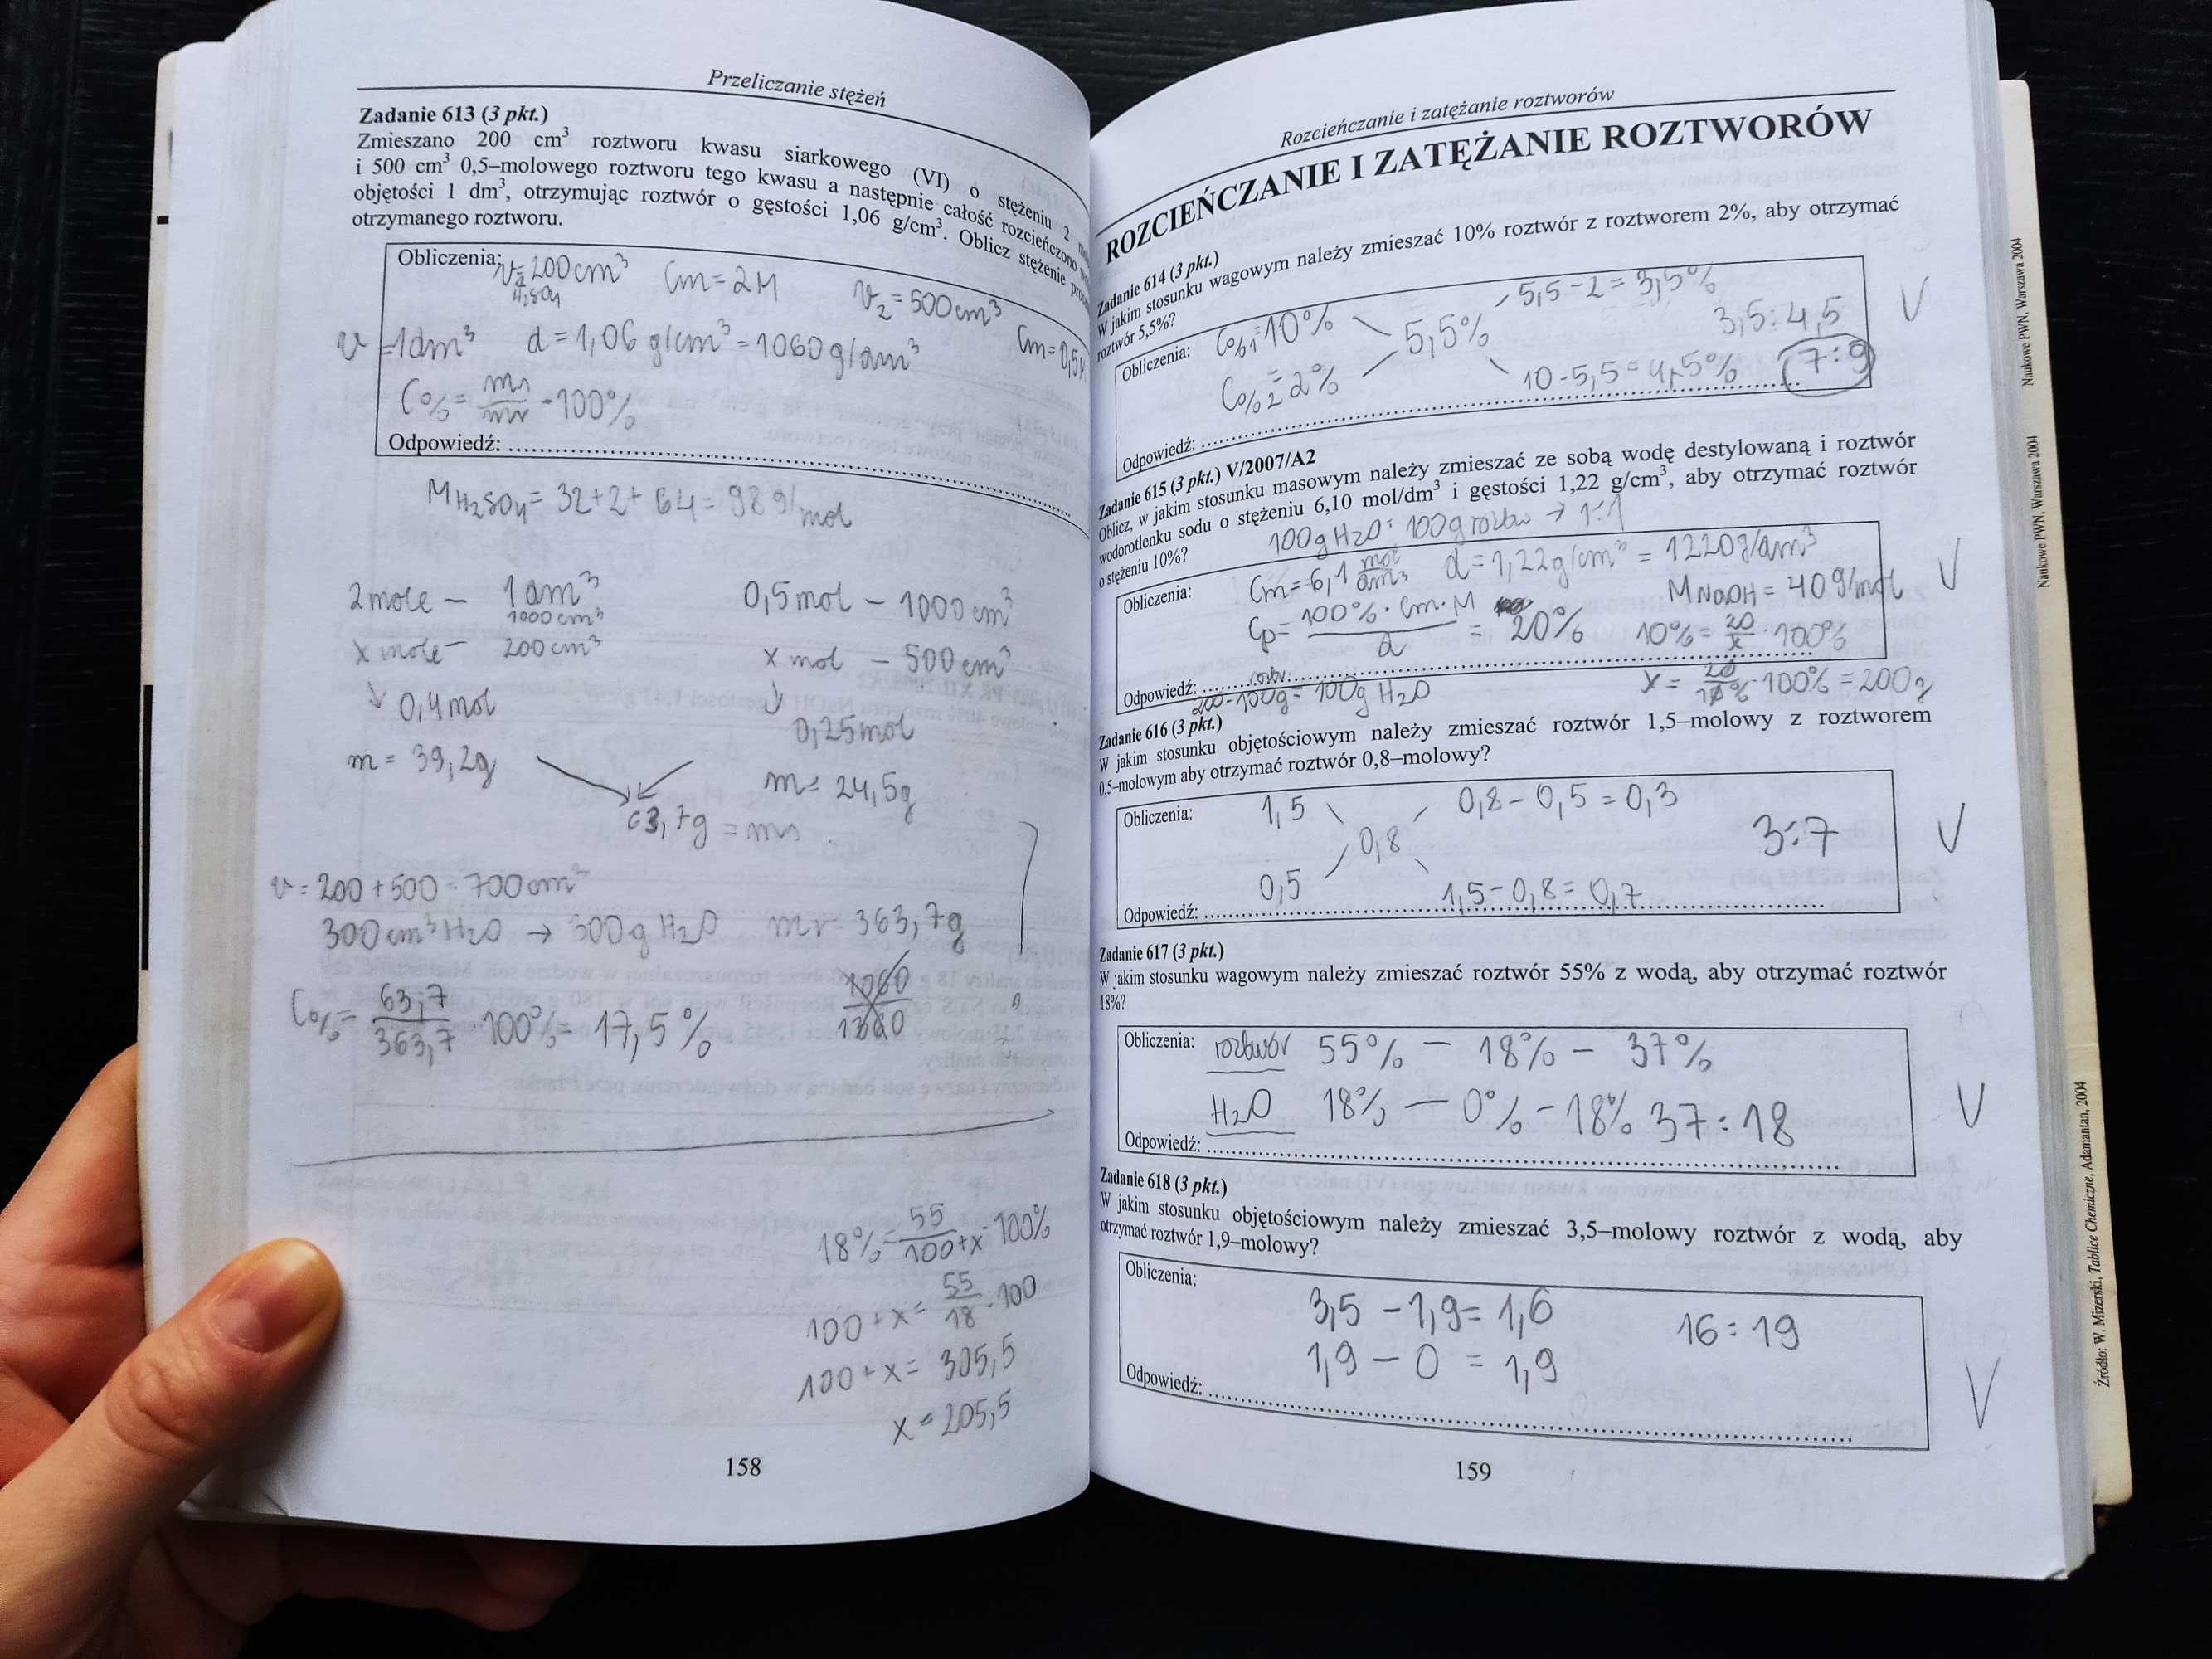 Przeliczanie stężeń
Zadanie 613 (3 pkt.)
Zmieszano 200 cm³ roztworu kwasu siarkowego (VI) o stężeniu 2
i 500 cm³ 0,5–molowego roztworu tego kwasu a następnie całość rozcieńczono
objętości 1 dm³, otrzymując roztwór o gęstości 1,06 g/cm³. Oblicz stężenie
otrzymanego roztworu.
Obliczenia: V=200cm³ Cm=2M V₂=500cm³
H₂SO₄
V=1dm³ d=1,06 g/cm³=1060g/dm³ Cm=0,5M
C%= ms/mr ·100%
Odpowiedź:
M H₂SO₄= 32+2+64=98g/mol
2mole – 1dm³ 0,5mol – 1000cm³
1000cm³
x mole – 200cm³ x mol – 500cm³
↓ 0,4mol ↓
0,25mol
m=39,2g m=24,5g
63,7g=ms
V=200+500=700cm³
300cm³H₂O → 300gH₂O mr=363,7g
1060
C%= 63,7/363,7 ·100%=17,5% 1360
18%= 55/100+x ·100%
100+x= 55/18 ·100
100+x=305,5
x=205,5
158
Rozcieńczanie i zatężanie roztworów
ROZCIEŃCZANIE I ZATĘŻANIE ROZTWORÓW
Zadanie 614 (3 pkt.)
W jakim stosunku wagowym należy zmieszać 10% roztwór z roztworem 2%, aby otrzymać
roztwór 5,5%?
Obliczenia: C%₁=10% 5,5-2=3,5%
5,5% 3,5:4,5 V
C%₂=2% 10-5,5=4,5% 7:9
Odpowiedź:
Zadanie 615 (3 pkt.) V/2007/A2
Oblicz, w jakim stosunku masowym należy zmieszać ze sobą wodę destylowaną i roztwór
wodorotlenku sodu o stężeniu 6,10 mol/dm³ i gęstości 1,22 g/cm³, aby otrzymać roztwór
o stężeniu 10%?
100gH₂O:100g roztw → 1:1
Obliczenia: Cm=6,1 mol/dm³ d=1,22g/cm³=1220g/dm³ V
Cp= 100%·Cm·M/d =20% MNaOH=40g/mol
10%= 20/x ·100%
Odpowiedź: x= 20/10% ·100%=200g
200-100g=100gH₂O
Zadanie 616 (3 pkt.)
W jakim stosunku objętościowym należy zmieszać roztwór 1,5–molowy z roztworem
0,5–molowym aby otrzymać roztwór 0,8–molowy?
Obliczenia: 1,5 0,8-0,5=0,3
0,8 3:7 V
0,5 1,5-0,8=0,7
Odpowiedź:
Zadanie 617 (3 pkt.)
W jakim stosunku wagowym należy zmieszać roztwór 55% z wodą, aby otrzymać roztwór
18%?
Obliczenia: roztwór 55% – 18% – 37%
H₂O 18% – 0% – 18% 37:18 V
Odpowiedź:
Zadanie 618 (3 pkt.)
W jakim stosunku objętościowym należy zmieszać 3,5–molowy roztwór z wodą, aby
otrzymać roztwór 1,9–molowy?
Obliczenia:
3,5-1,9=1,6 16:19
1,9-0=1,9 V
Odpowiedź:
159
Naukowe PWN, Warszawa 2004
Naukowe PWN, Warszawa 2004
Źródło: W. Mizerski, Tablice Chemiczne, Adamantan, 2004